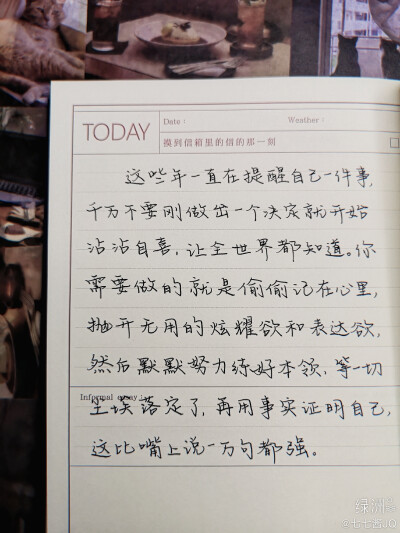 TODAY
Date：
Weather：
摸到信箱里的信的那一刻
这些年一直在提醒自己一件事，
千万不要刚做出一个决定就开始
沾沾自喜，让全世界都知道。你
需要做的就是偷偷记在心里，
抛开无用的炫耀欲和表达欲，
然后默默努力练好本领，等一切
Informal essay
尘埃落定了，再用事实证明自己，
这比嘴上说一万句都强。
绿洲
@七七酱JQ